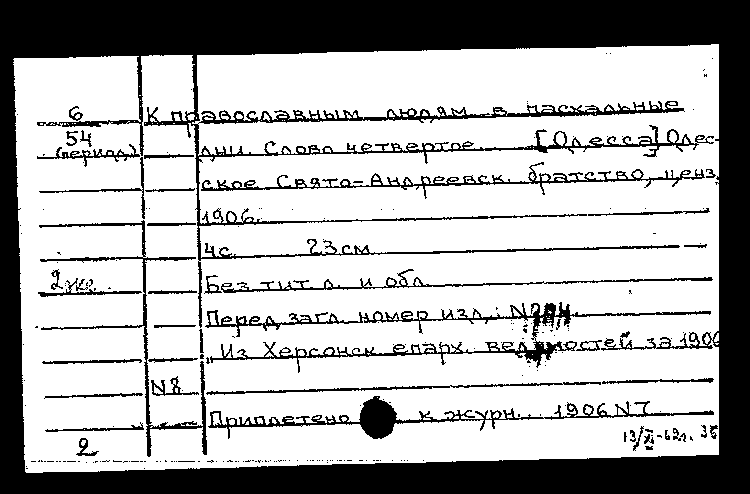 6
54
(период.)
К православным людям в пасхальные
дни. Слово четвертое. [Одесса] Одес-
ское Свято-Андреевск. братство, ценз.
1906.
4с. 23см
2 экз.
Без тит. л. и обл.
Перед загл. номер изд.: N204.
„Из Херсонск епарх. ведомостей за 1906
N8
Приплетено к журн. 1906 N7
2
13/XI-62г.